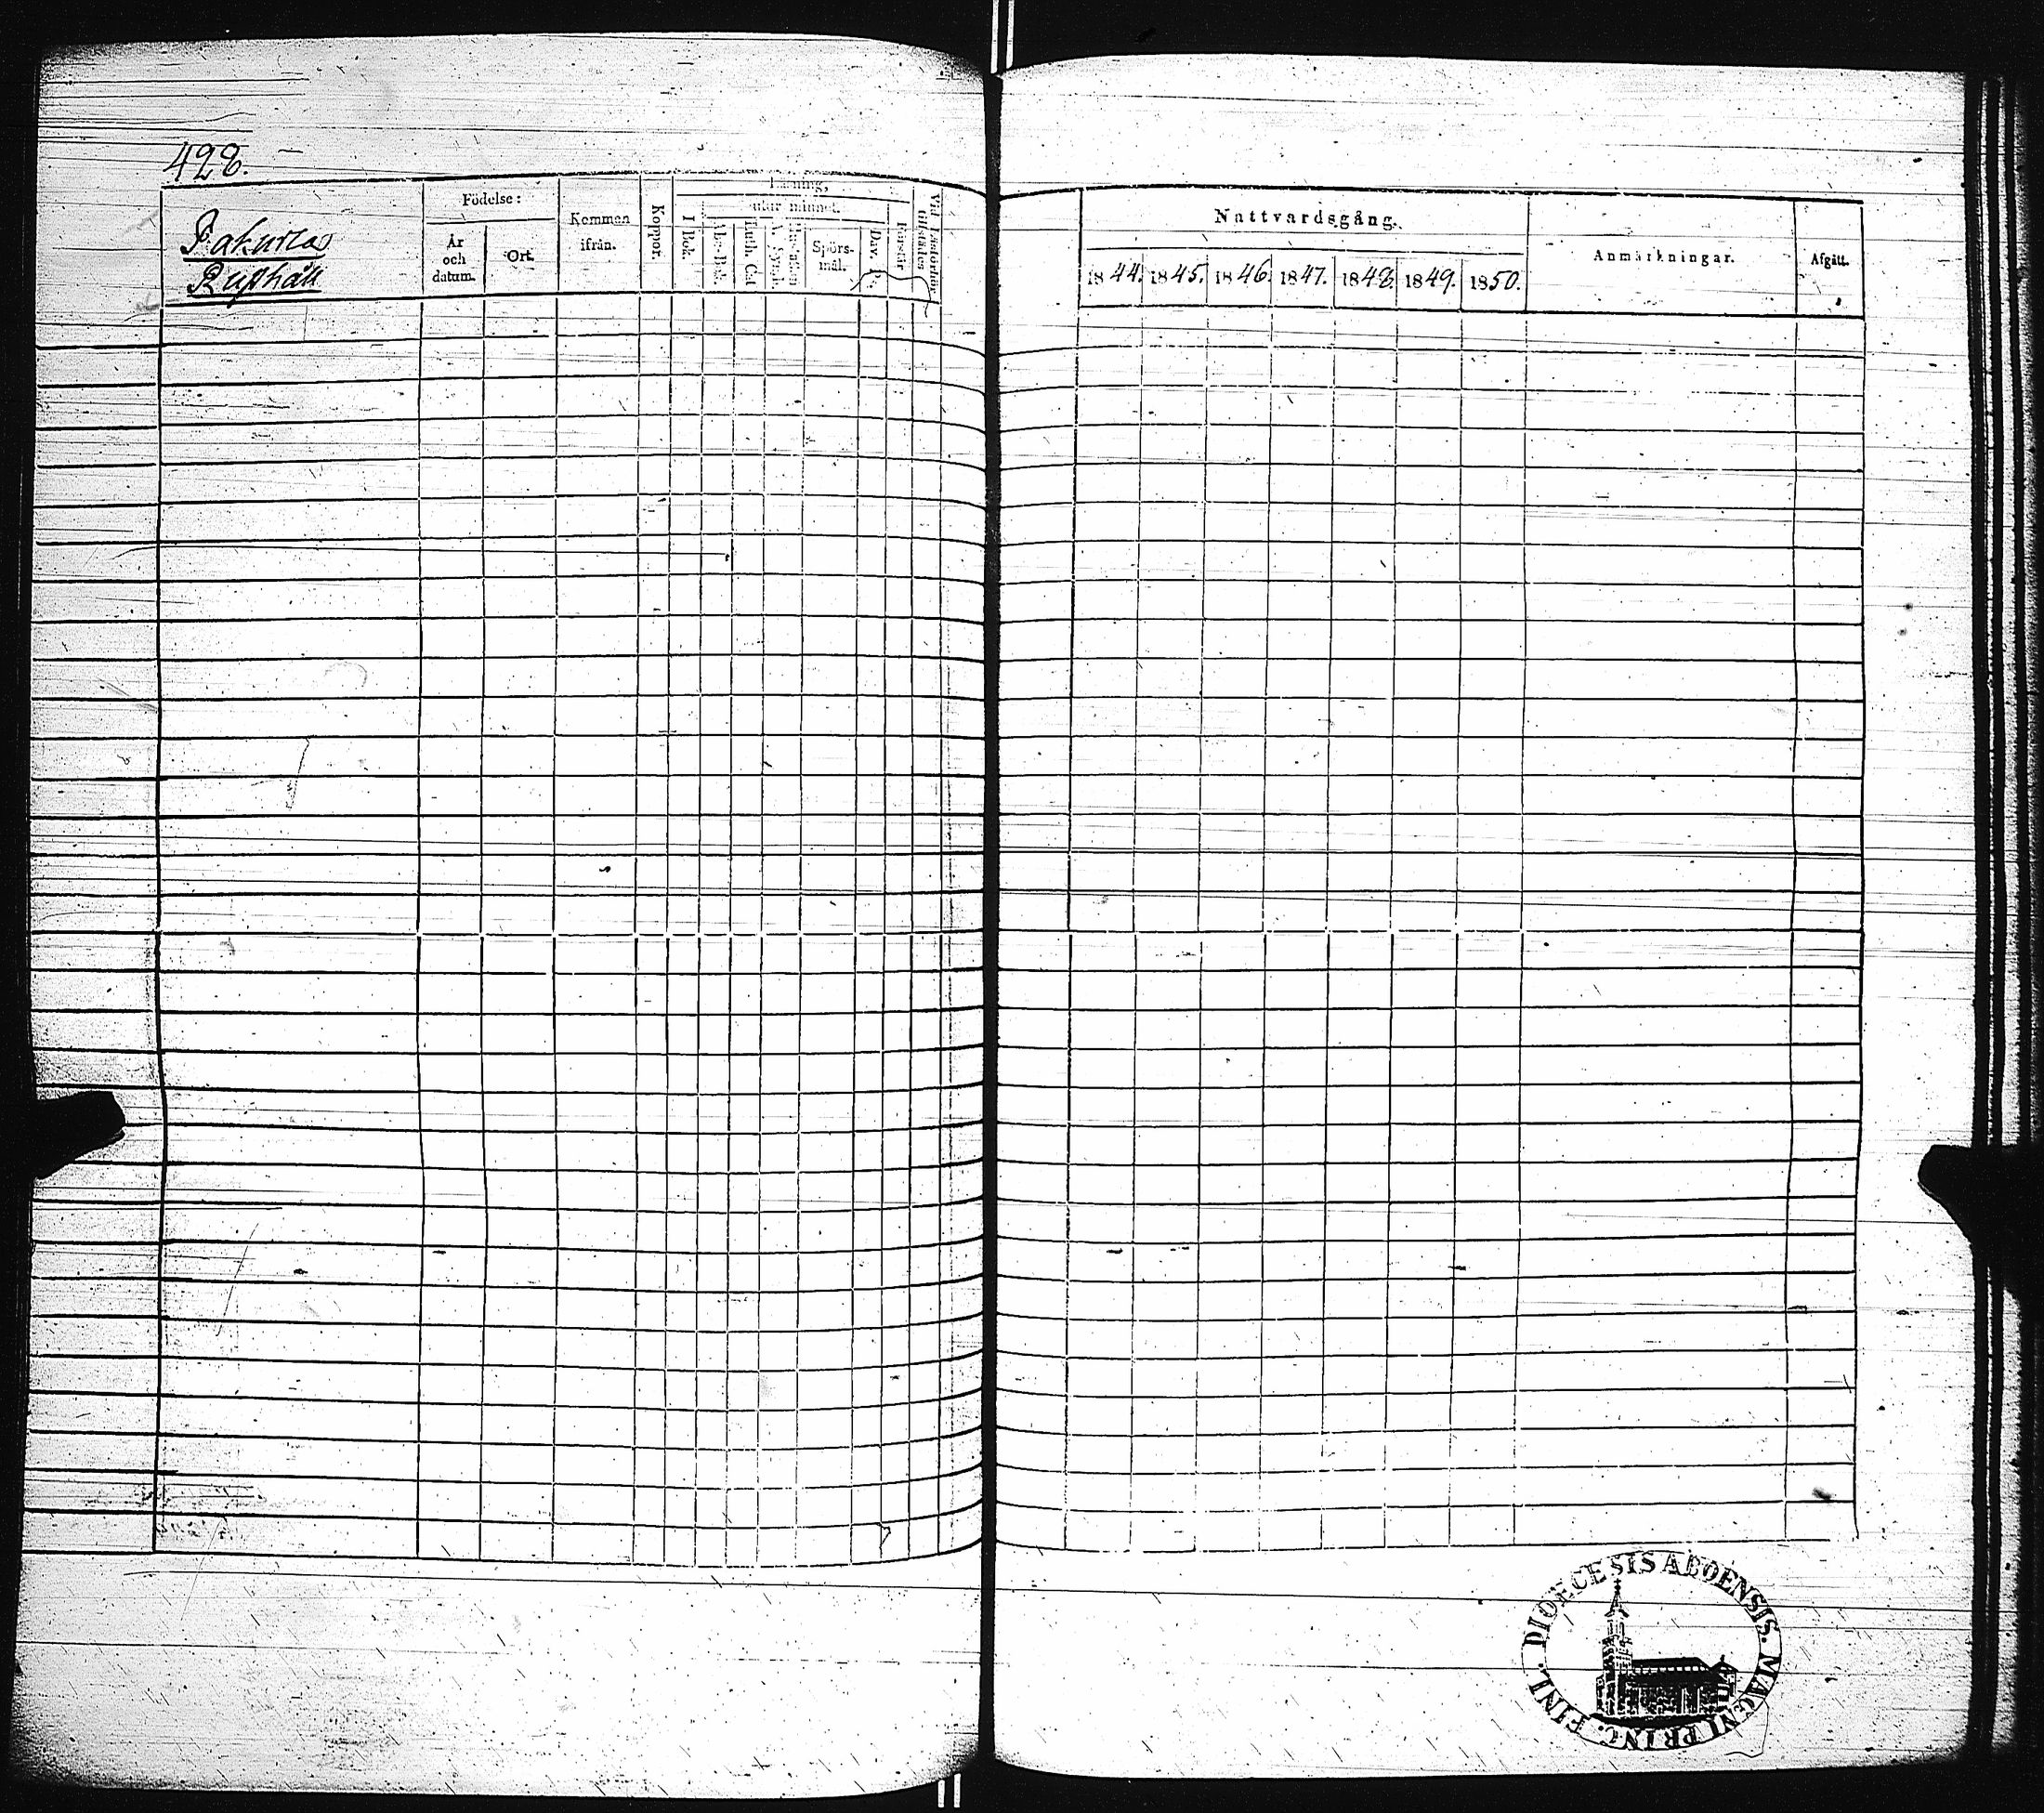 428.
Pakurla
Rusthåll
Födelse:
År
och
datum.
Ort.
Kommen
ifrån.
Koppor.
Läsning,
utur minnet.
I Bok.
Abc-Bok.
Luth. Cat
Spörs-
mål.
Dav. Ps.
Förstår
Vid Läseförhör
Nattvardsgång.
1844. 1845. 1846. 1847. 1848. 1849. 1850.
Anmärkningar.
Afgått.
DIOECESIS ABOENSIS. MAGNI PRINC. FINL.